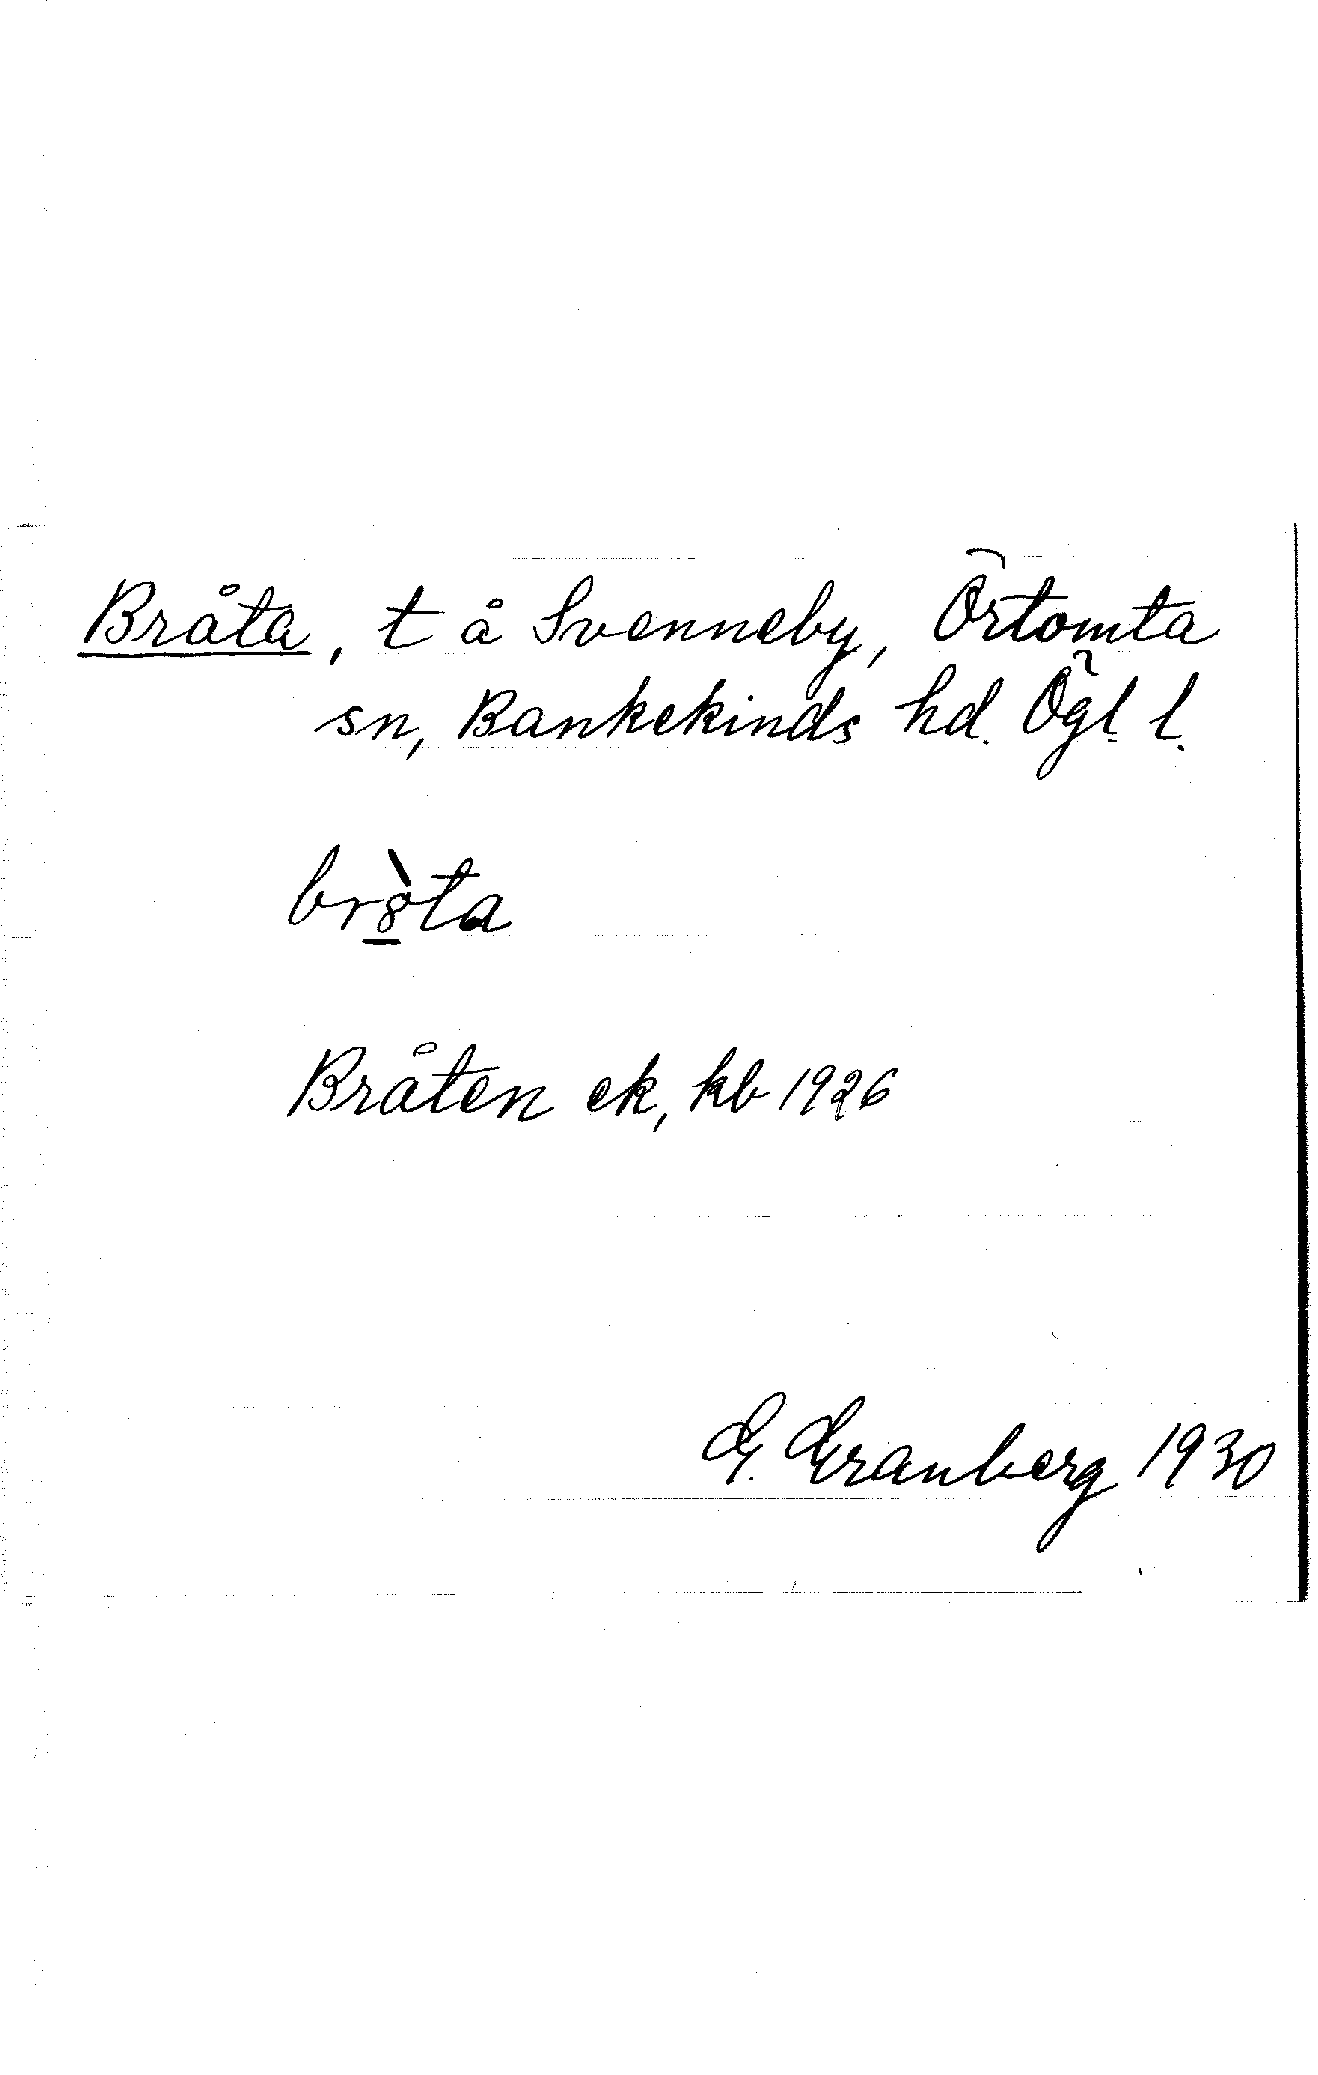 Bråta, t å Svenneby, Örtomta
sn, Bankekinds hd. Ögl. l.
br8̲̀ta
Bråten ek, kb 1926
G. Granberg 1930